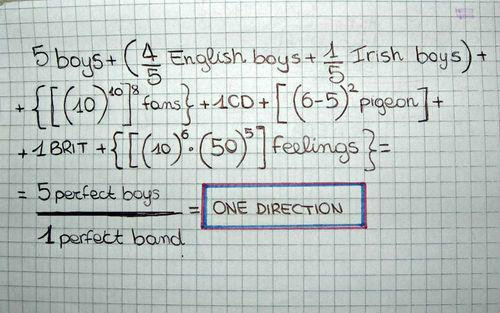 5 boys + (4/5 English boys + 1/5 Irish boys) +
+ {[(10)^10]^8 fans} + 1CD + [(6-5)^2 pigeon] +
+ 1BRIT + {[(10)^6 · (50)^5] feelings} =
= 5 perfect boys / 1 perfect band = ONE DIRECTION